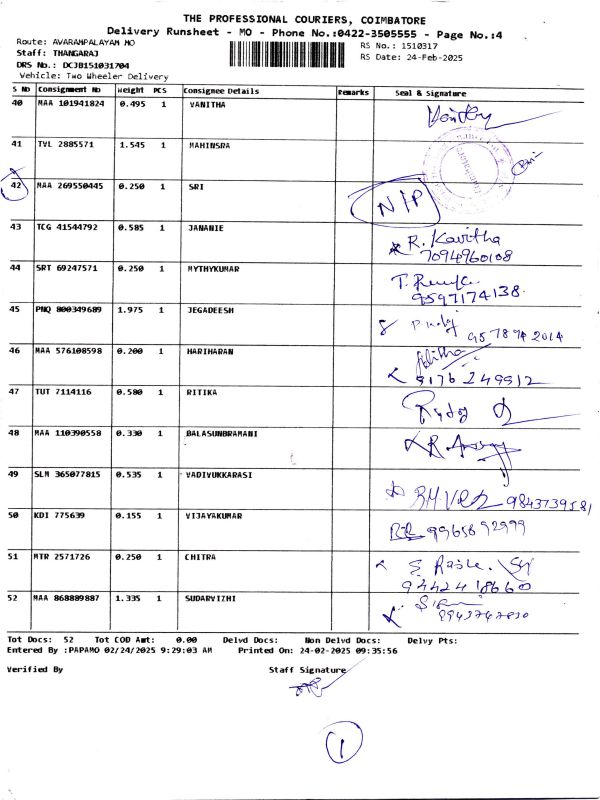 THE PROFESSIONAL COURIERS, COIMBATORE
Delivery Runsheet - MO - Phone No.:0422-3505555 - Page No.:4
Route: AVARAMPALAYAM MO
RS No.: 1510317
Staff: THANGARAJ
RS Date: 24-Feb-2025
DRS No.: DCJB151031704
Vehicle: Two Wheeler Delivery
S No Consignment No Weight PCS Consignee Details Remarks Seal & Signature
40 MAA 101941824 0.495 1 VANITHA
41 TVL 2885571 1.545 1 MAHINSRA
42 MAA 269550445 0.250 1 SRI N/P
43 TCG 41544792 0.585 1 JANANIE R. Kavitha
7094960108
44 SRT 69247571 0.250 1 MYTHYKUMAR
9597174138
45 PNQ 800349689 1.975 1 JEGADEESH
46 MAA 576108598 0.200 1 HARIHARAN
47 TUT 7114116 0.580 1 RITIKA
48 MAA 110390558 0.330 1 BALASUNBRAMANI
49 SLM 365077815 0.535 1 VADIVUKKARASI 9843739581
50 KDI 775639 0.155 1 VIJAYAKUMAR 9965892999
51 MTR 2571726 0.250 1 CHITRA
9442418660
52 MAA 868889887 1.335 1 SUDARVIZHI
Tot Docs: 52 Tot COD Amt: 0.00 Delvd Docs: Non Delvd Docs: Delvy Pts:
Entered By :PAPAMO 02/24/2025 9:29:03 AM Printed On: 24-02-2025 09:35:56
Verified By Staff Signature
1